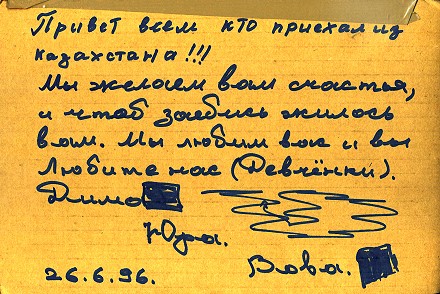 Привет всем кто приехал из
казахстана!!!
Мы желаем вам счастья,
и чтоб заебись жилось
вам. Мы любим вас и вы
Любите нас (Девчёнки).
Дима
Юра.
Вова.
26.6.96.